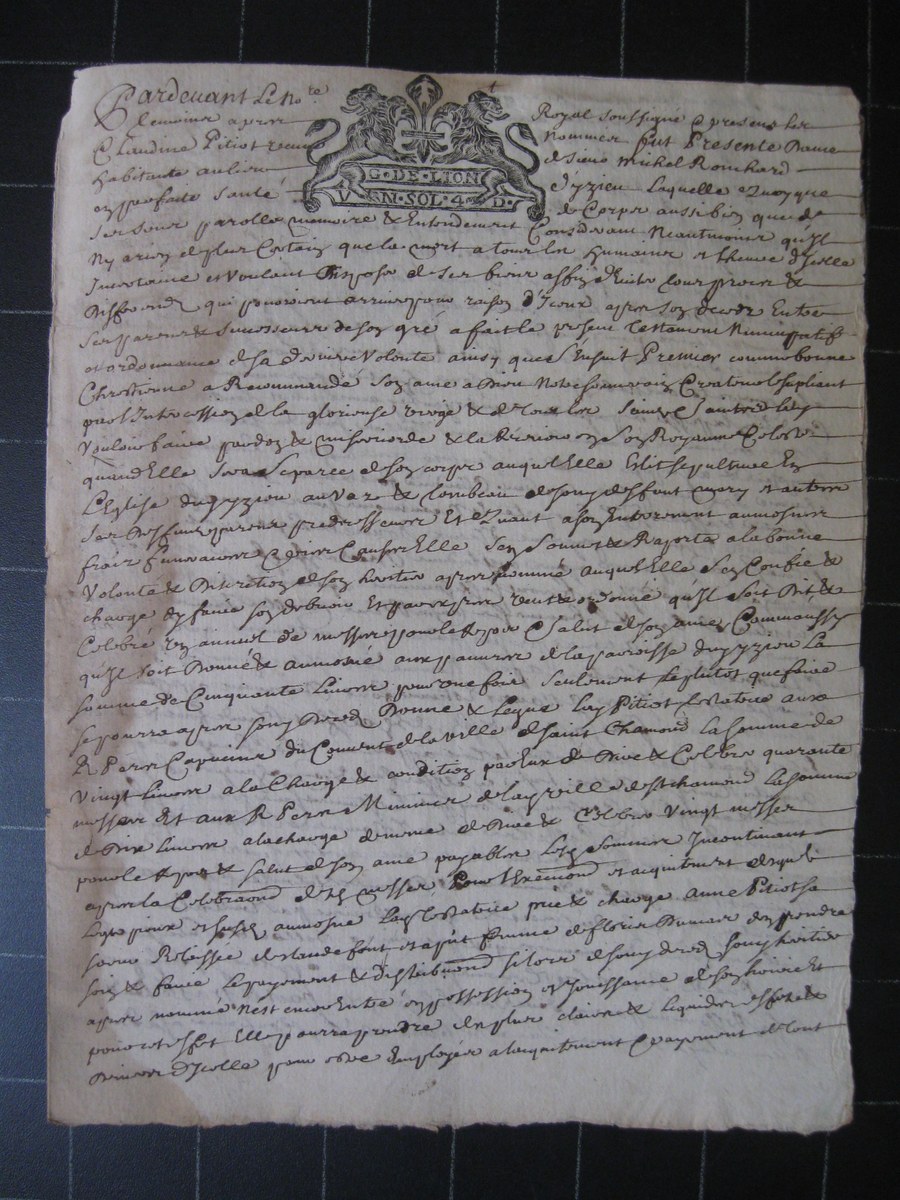 Pardevant Le no.re Royal soussigné & presens les
temoins apres nommés fut Presente Dame
Claudine Pitiot de sieur Michel Ronchard
habitante au lieu d'yzieu Laquelle quoyque
G·DE·LION
V N·SOL·4·D·
en parfaite santé de Corps aussi bien que de
ses sens parolle memoire & Entendement Considerant neantmoins qu'Il
Ny a rien de plus Certain que la mort a tous les humains et l'heure d'Icelle
Incertaine et Voulant Disposer de ses biens affin d'Eviter tous proces &
Differends qui pouroient arriver pour raison d'Iceux apres son deceds Entre
ses parens & successeurs de son gré a fait le present Testament Nuncupatif
et ordonnance de sa derniere Volonté ainsy que s'Ensuit Premier comme bonne
Chrestienne a Recommandé son ame a Dieu Notre souverain Createur le supliant
par l'Intercession de la glorieuse vierge & de tous les Saints & Saintes luy
Vouloir faire pardon & misericorde & la Recevoir en son Royaume Celeste
quand Elle sera separée de son corps auquel Elle Elit sepulture En
L'Eglise dudit yzieu au Vaz & tombeau de son deffunt mary et autres
ses Deffuns parens predecesseurs Et Quant a son Enterrement aumosnes
frais funeraires Elle s'en soumet & Raporte a la bonne
Volonté & Discretion de son heritier apres nommé auquel Elle s'en Confie &
charge d'y faire son debvoir Et par expres veut & ordonne qu'Il soit Dit &
Celebré un annuel de messes pour le Repos & salut de son ame Comme aussy
qu'Il soit Donné & aumosné aux pauvres de la paroisse dudit yzieu La
somme de Cinquante Livres pour une fois seulement le plutot que faire
se pourra apres son Deceds Donne & Legue Lad. Pitiot testatrice aux
R Peres Capucins du Couvent de la Ville de Saint Chamond la somme de
Vingt Livres a la Charge & condition par Eux de Dire & Celebrer quarante
messes Et aux R Peres Minimes de lad. Ville de St chamond La somme
de Dix Livres a la charge de meme de Dire & Celebrer Vingt messes
pour le Repos & salut de son ame payables Lesd. sommes Incontinant
apres la Celebraon desd. messes Pour l'Execuon et acquitement desquels
Legs pieux et susd. aumosne Lad. testatrice prie & charge anne Pitiot sa
soeur femme de fleury Dumas d'en prendre
soin & faire le payement & distribuon si lors de son deceds son heritier
apres nommé n'est encore Entré en possession et Jouissance de son hoirie Et
pour cet effet Elle pourra prendre des plus clairs & liquides effets &
Deniers d'Icelle pour Estre Employés a l'acquitement & payement de tout